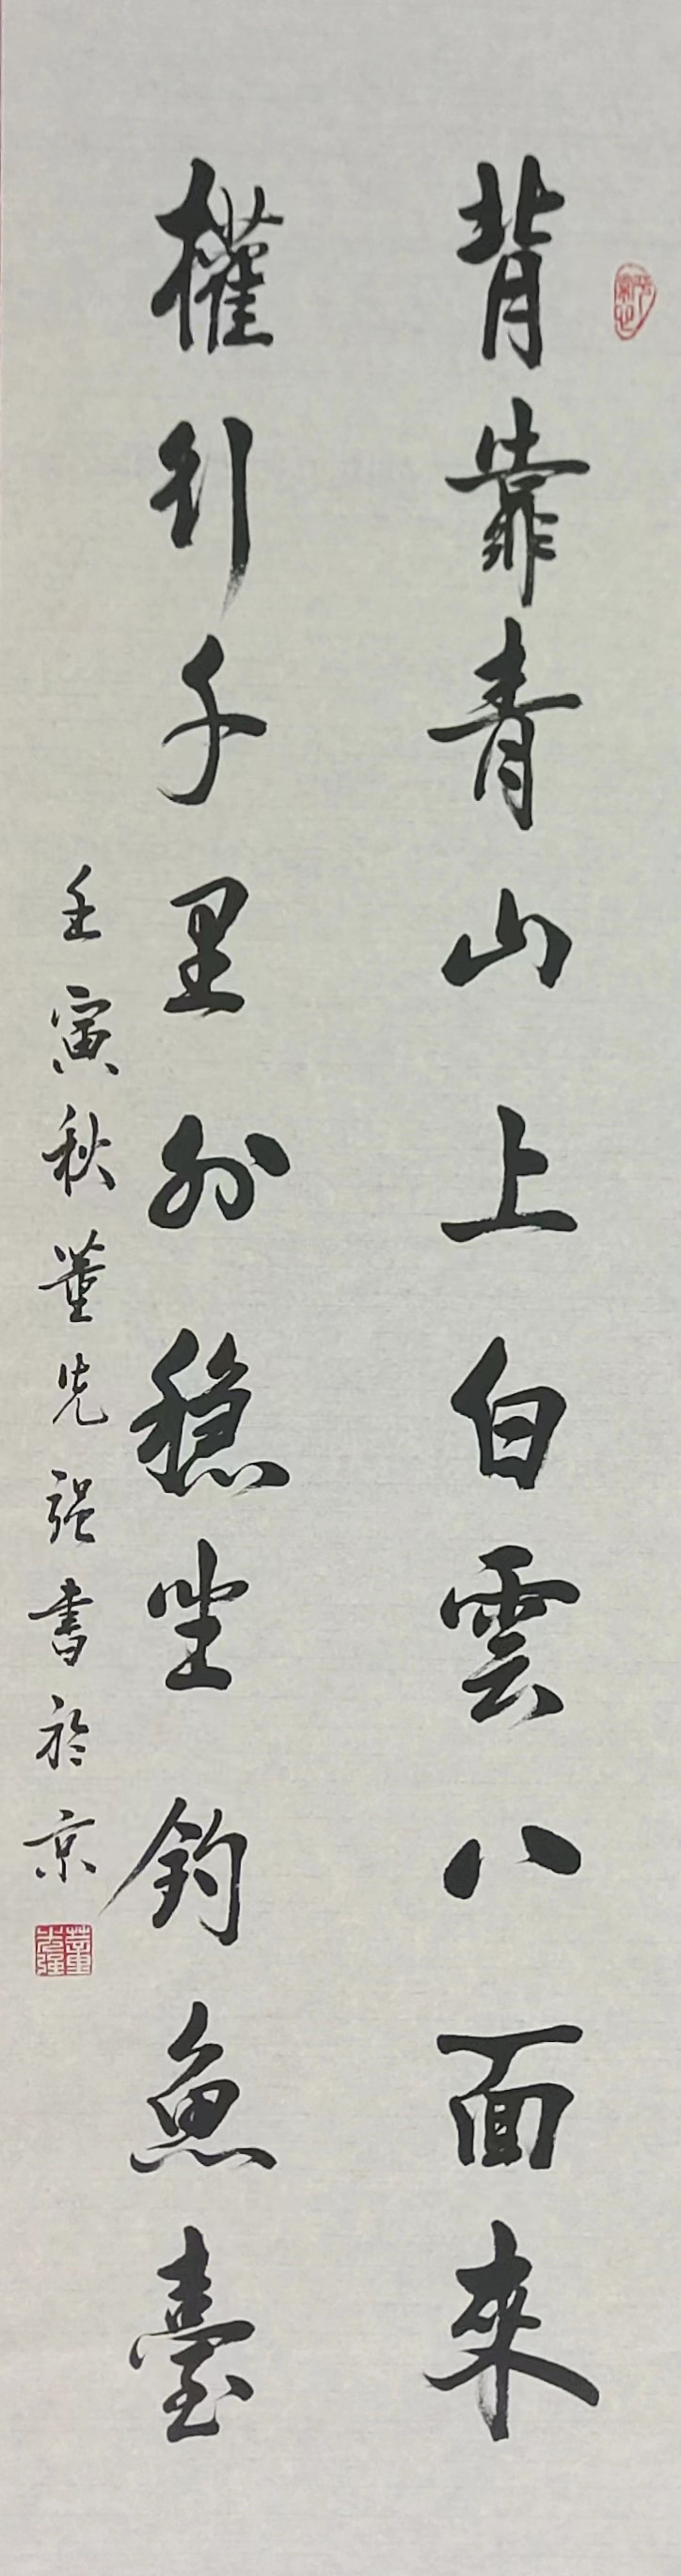 背靠青山上白雲八面來
權引千里外穩坐釣魚臺
壬寅秋董先强書於京
董先强